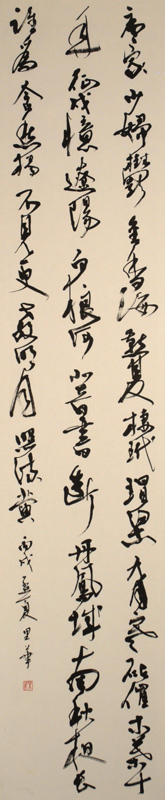 盧家少婦鬱金香海燕雙棲玳瑁梁九月寒砧催木葉十
年征戍憶遼陽白狼河北音書斷丹鳳城南秋夜長
誰為含愁獨不見更教明月照流黃 丙戌孟夏